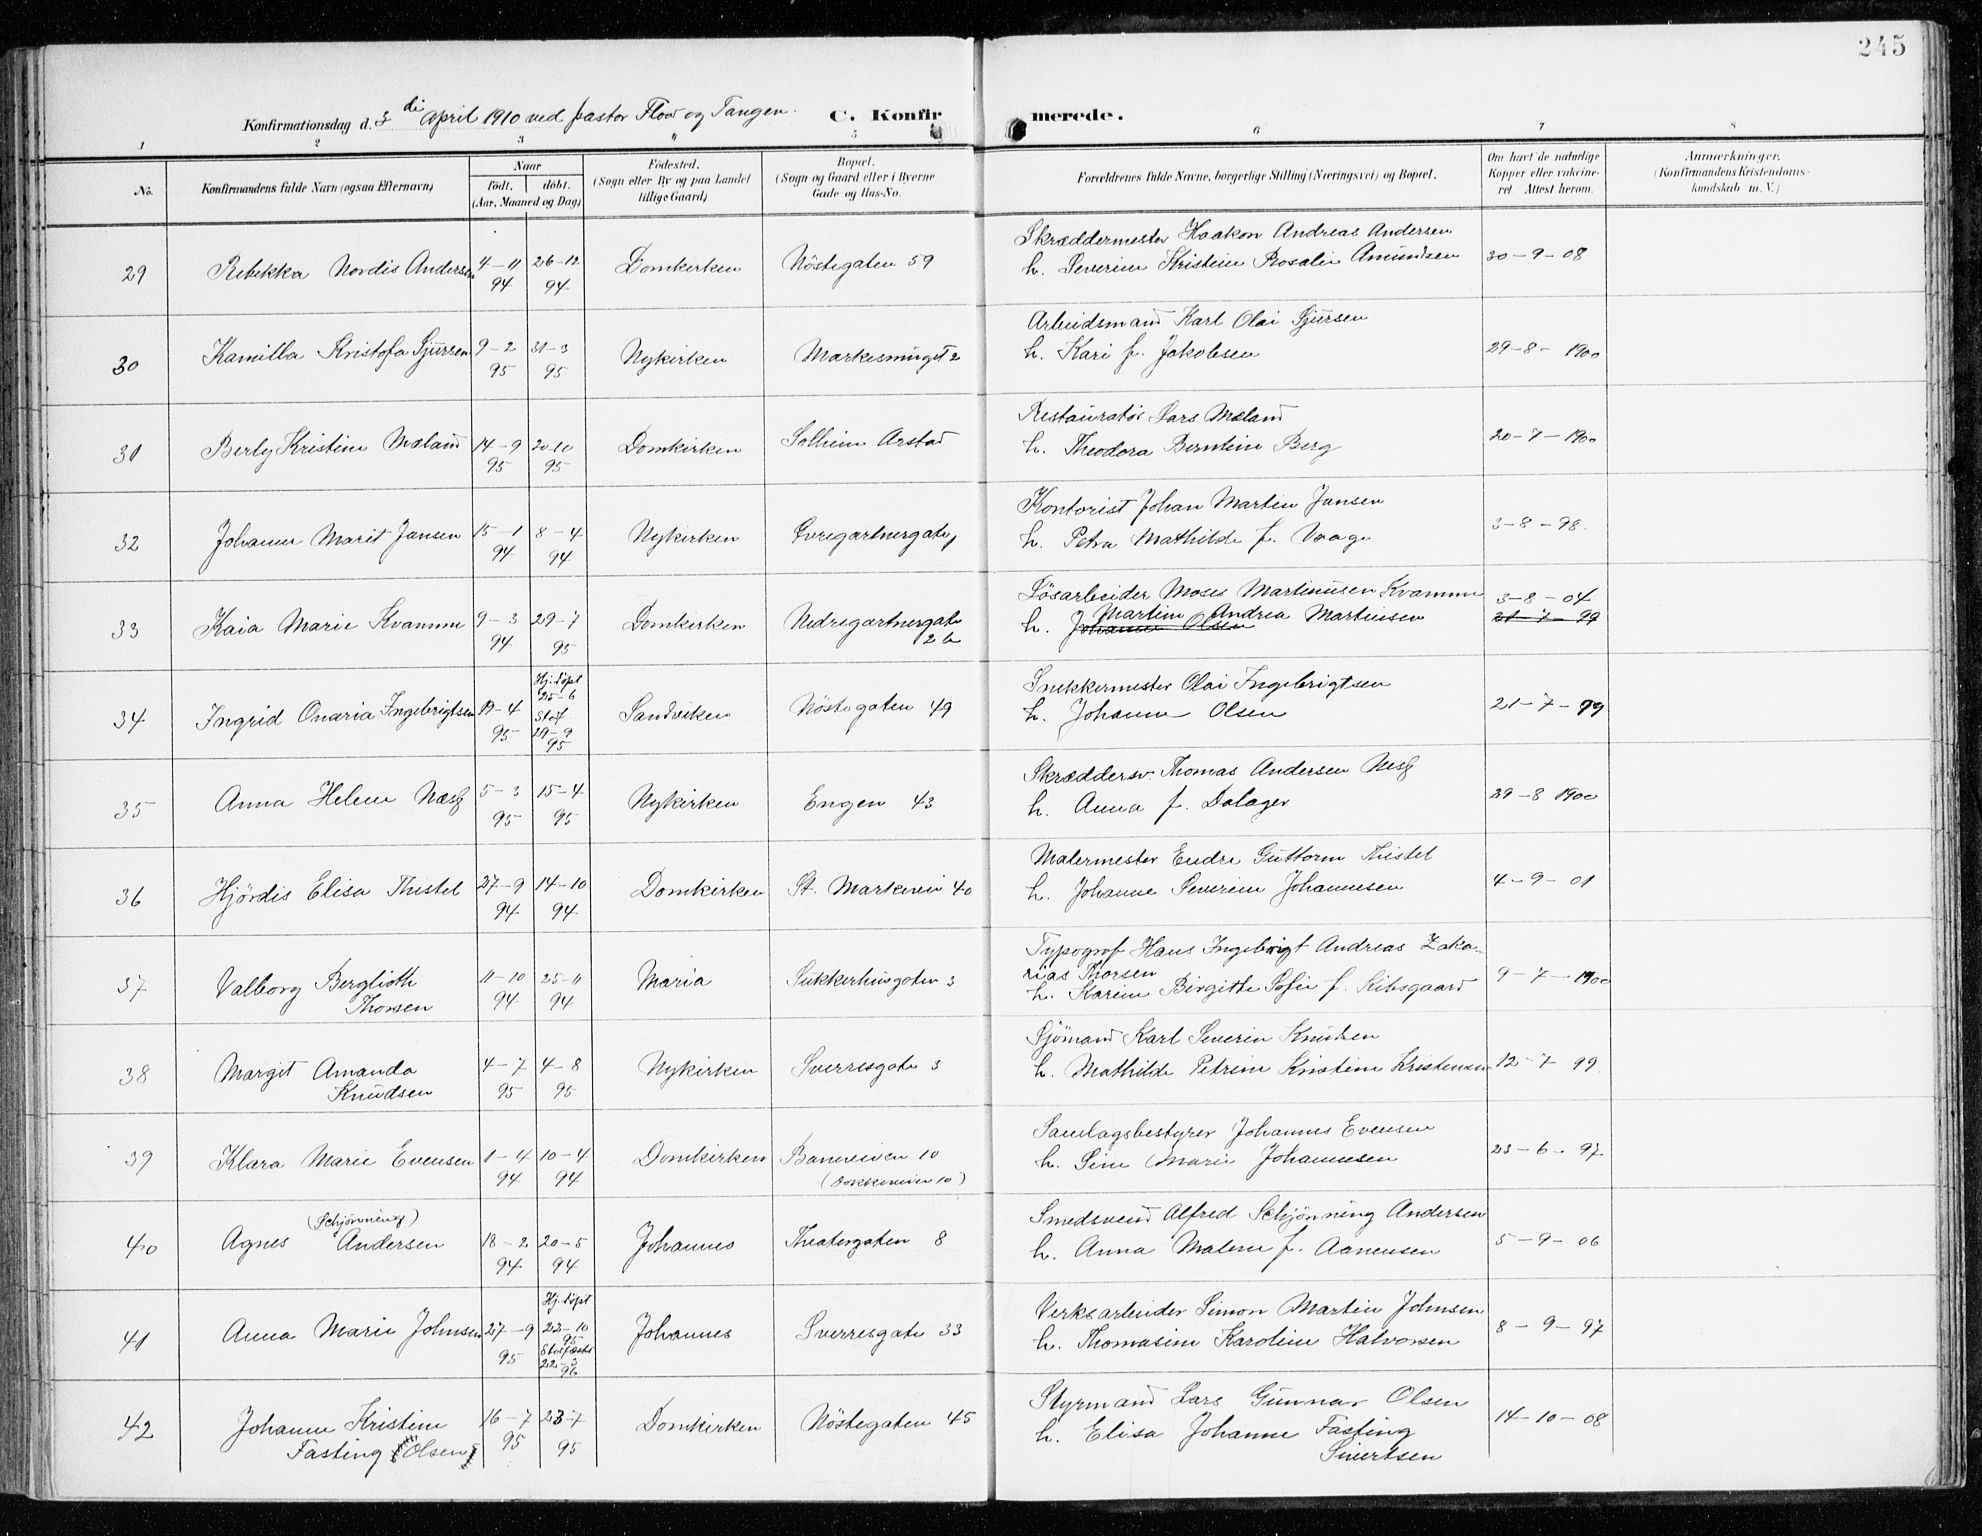 245
Konfirmationsdag d. 3di April 1910 ved pastor Floor og Tangen.
C. Konfirmerede.
1 2 3 4 5 6 7 8
No.
Konfirmandens fulde Navn (ogsaa Efternavn)
Naar
født. døbt.
(Aar, Maaned og Dag)
Fødested.
(Sogn eller By og paa Landet
tillige Gaard)
Bopæl.
(Sogn og Gaard eller i Byerne
Gade og Hus-No.
Forældrenes fulde Navne, borgerlige Stilling (Næringsvei) og Bopæl.
Om havt de naturlige
Kopper eller vakcine-
ret. Attest herom.
Anmærkninger.
(Konfirmandens Kristendoms-
kundskab m. V.)
29 Rebekka Nordis Andersen 4-11 94 26-12 94 Domkirken Nöstegaten 59
Skræddermester Haakon Andreas Andersen
h. Severine Kristine Rosalie Amundsen 30-9-08
30 Kamilla Kristofa Sjursen 9-2 95 31-3 95 Nykirken Markesmuget 2
Arbeidsmand Karl Olai Sjursen
h. Kari f. Jakobsen 29-8-1900
31 Berly Kristine Mæland 14-9 95 20-10 95 Domkirken Solheim Arstad
Restauratör Lars Mæland
h. Theodora Berntine Berg 20-7-1900
32 Johanne Marit Jansen 15-1 94 8-4 94 Nykirken Övregartnergate
Kontorist Johan Martin Jansen
h. Petra Mathilde f. Vaage 3-8-98.
33 Kaia Marie Kvamme 9-3 94 29-7 95 Domkirken Nedregartnergate 2 b
Løsarbeider Moses Martinusen Kvamme 3-8-04
h. Johanne Olsen Martine Andrea Martinsen 21-7-99
34 Ingrid Onaria Ingebrigtsen 19-4 95 Hj.döpt 25-6 Stf. 29-9 95 Sandviken Nöstegaten 49
Snekkermester Olai Ingebrigtsen
h. Johanne Olsen 21-7-99
35 Anna Helene Næss 5-3 95 15-4 95 Nykirken Engen 43
Skræddersv. Thomas Andersen Næss
h. Anna f. Dalager 29-8 1900
36 Hjördis Elisa Thistel 27-9 94 14-10 94 Domkirken St. Markevei 40
Malermester Endre Guttorm Thistel
h. Johanne Severine Johannesen 4-9-01
37 Valborg Berglioth Thorsen 11-10 94 25-11 94 Maria Sukkerhusgaten 3
Typograf Hans Ingebrigt Andreas Zaka-
rias Thorsen
h. Karine Birgitte Sofie f. Kibsgaard 9-7-1900
38 Margit Amanda Knudsen 4-7 95 4-8 95 Nykirken Sverresgate 3
Sjömand Karl Severin Knudsen
h. Mathilde Petrine Kristine Kristensen 12-7 99.
39 Klara Marie Evensen 1-4 94 10-4 94 Domkirken Baneveien 10
(Dokkeveien 10)
Samlagsbestyrer Johannes Evensen
h. Sine Marie Johannesen 23-6-97
40 Agnes (Schjönning) Andersen 18-2 94 20-5 94 Johannes Theatergaten 8
Smedsvend Alfred Schjönning Andersen
h. Anna Malene f. Aanensen 5-9-06
41 Anna Marie Johnsen 27-9 95 Hj.döpt 22-10 95 Stadfæstet 22-3 96 Johannes Sverresgate 33
Verksarbeider Simon Martin Johnsen
h. Thomasine Karoline Halvorsen 8-9-97
42 Johanne Kristine Fasting (Olsen) 16-7 95 23-7 95 Domkirken Nöstegaten 45
Styrmand Lars Gunnar Olsen
h. Elisa Johanne Fasting
Sivertsen 14-10-08